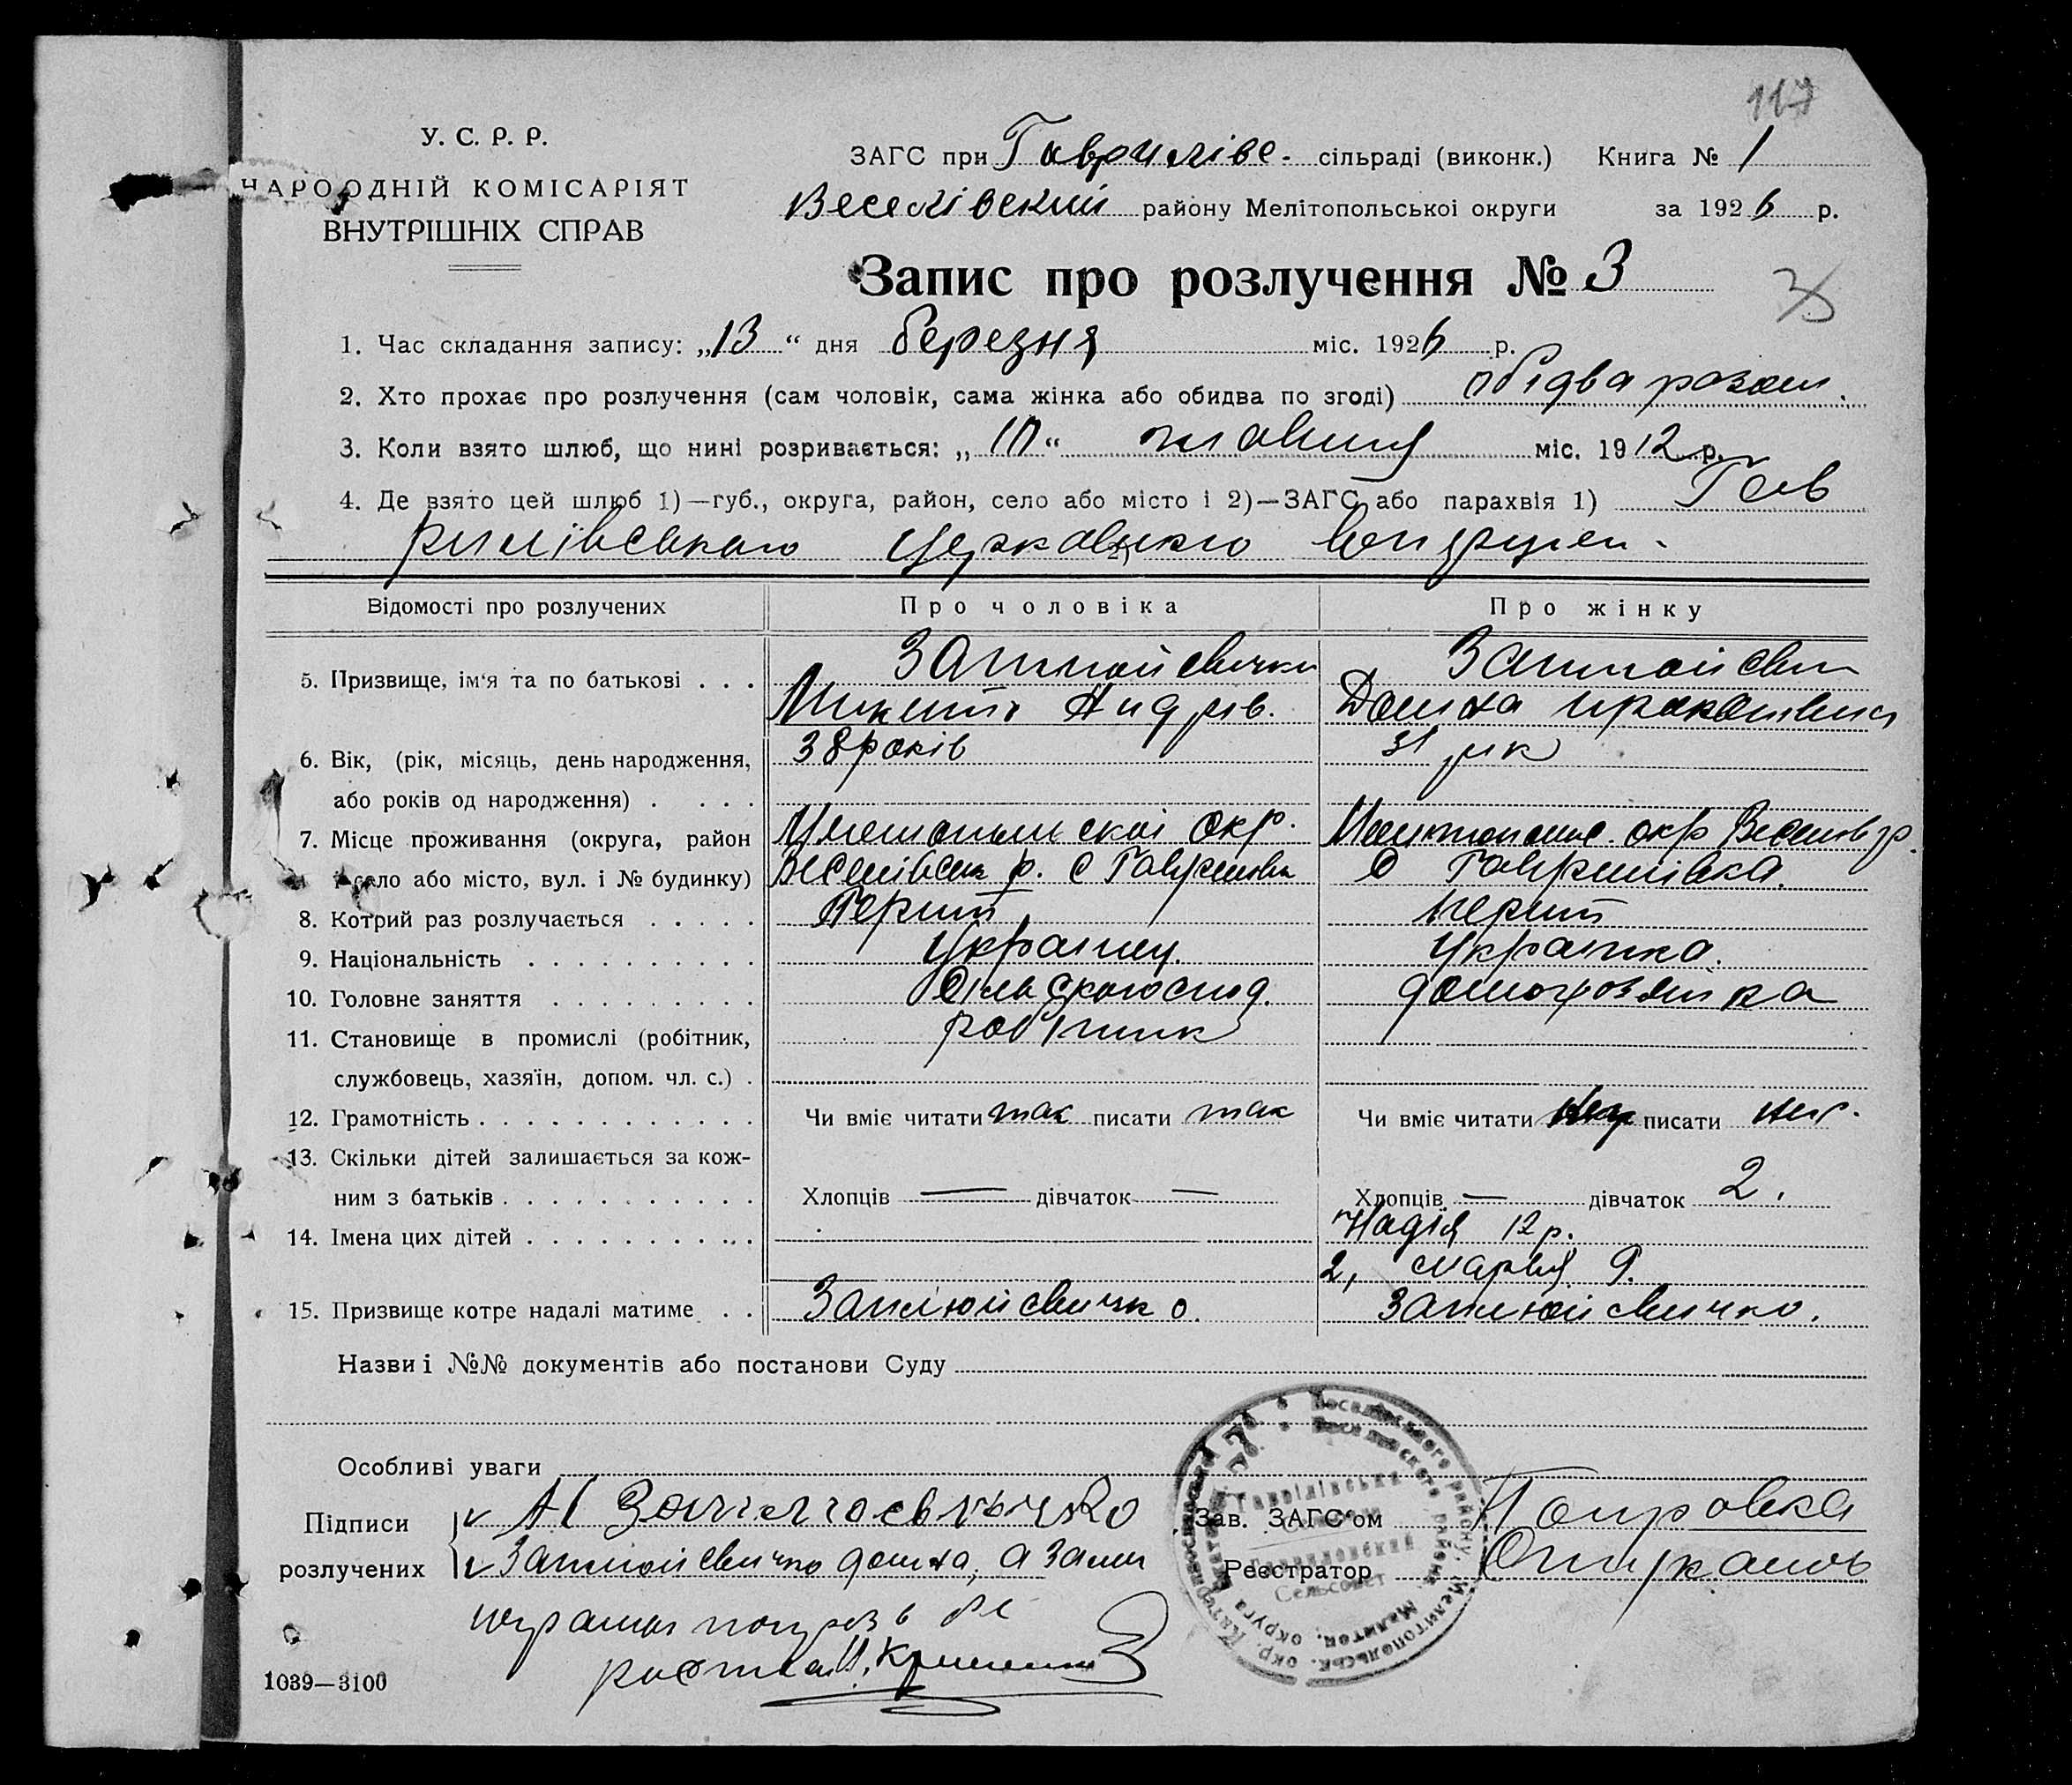 117
У. С. Р. Р.
НАРОДНІЙ КОМІСАРІЯТ
ВНУТРІШНІХ СПРАВ
ЗАГС при Гаврилівс- сільраді (виконк.) Книга № 1
Веселівский району Мелітопольської округи за 1926 р.
Запис про розлучення № 3
3
1. Час складання запису: „13“ дня березня міс. 1926 р.
2. Хто прохає про розлучення (сам чоловік, сама жінка або обидва по згоді) обідва разом.
3. Коли взято шлюб, що нині розривається: „10“ міс. 1912 р.
4. Де взято цей шлюб 1)—губ., округа, район, село або місто і 2)—ЗАГС або парахвія 1) Гав
рилівського церковного 2)
Відомості про розлучених Про чоловіка Про жінку
5. Призвище, ім‘я та по батькові . . . Заплюйсвичко Заплюйсвич
Микита Андрів. Домха
6. Вік, (рік, місяць, день народження, 38 років 31 рік
або років од народження) . . . .
7. Місце проживання (округа, район окр. Мелитопольс. окр Веселов р.
село або місто, вул. і № будинку) Веселівськ р. с Гаврилівка с Гаврилівка.
8. Котрий раз розлучається . . . . . Перший перший
9. Національність . . . . . . . . . . Українец. Українка.
10. Головне заняття . . . . . . . . . Сільскогоспод. домохозяйка
11. Становище в промислі (робітник, робітник
службовець, хазяїн, допом. чл. с.) .
12. Грамотність . . . . . . . . . . . . Чи вміє читати так писати так Чи вміє читати писати
13. Скільки дітей залишається за кож-
ним з батьків . . . . . . . . . . . Хлопців — дівчаток — Хлопців — дівчаток 2.
14. Імена цих дітей . . . . . . . . . . Надія 12 р.
2, Марія 9.
15. Призвище котре надалі матиме . . Заплюйсвичко. Заплюйсвичко.
Назви і №№ документів або постанови Суду
Особливі уваги
Підписи
розлучених
Заплюйсвичко Домха, а за
Зав. ЗАГС'ом
Реєстратор
Сельсовет
1039—3100